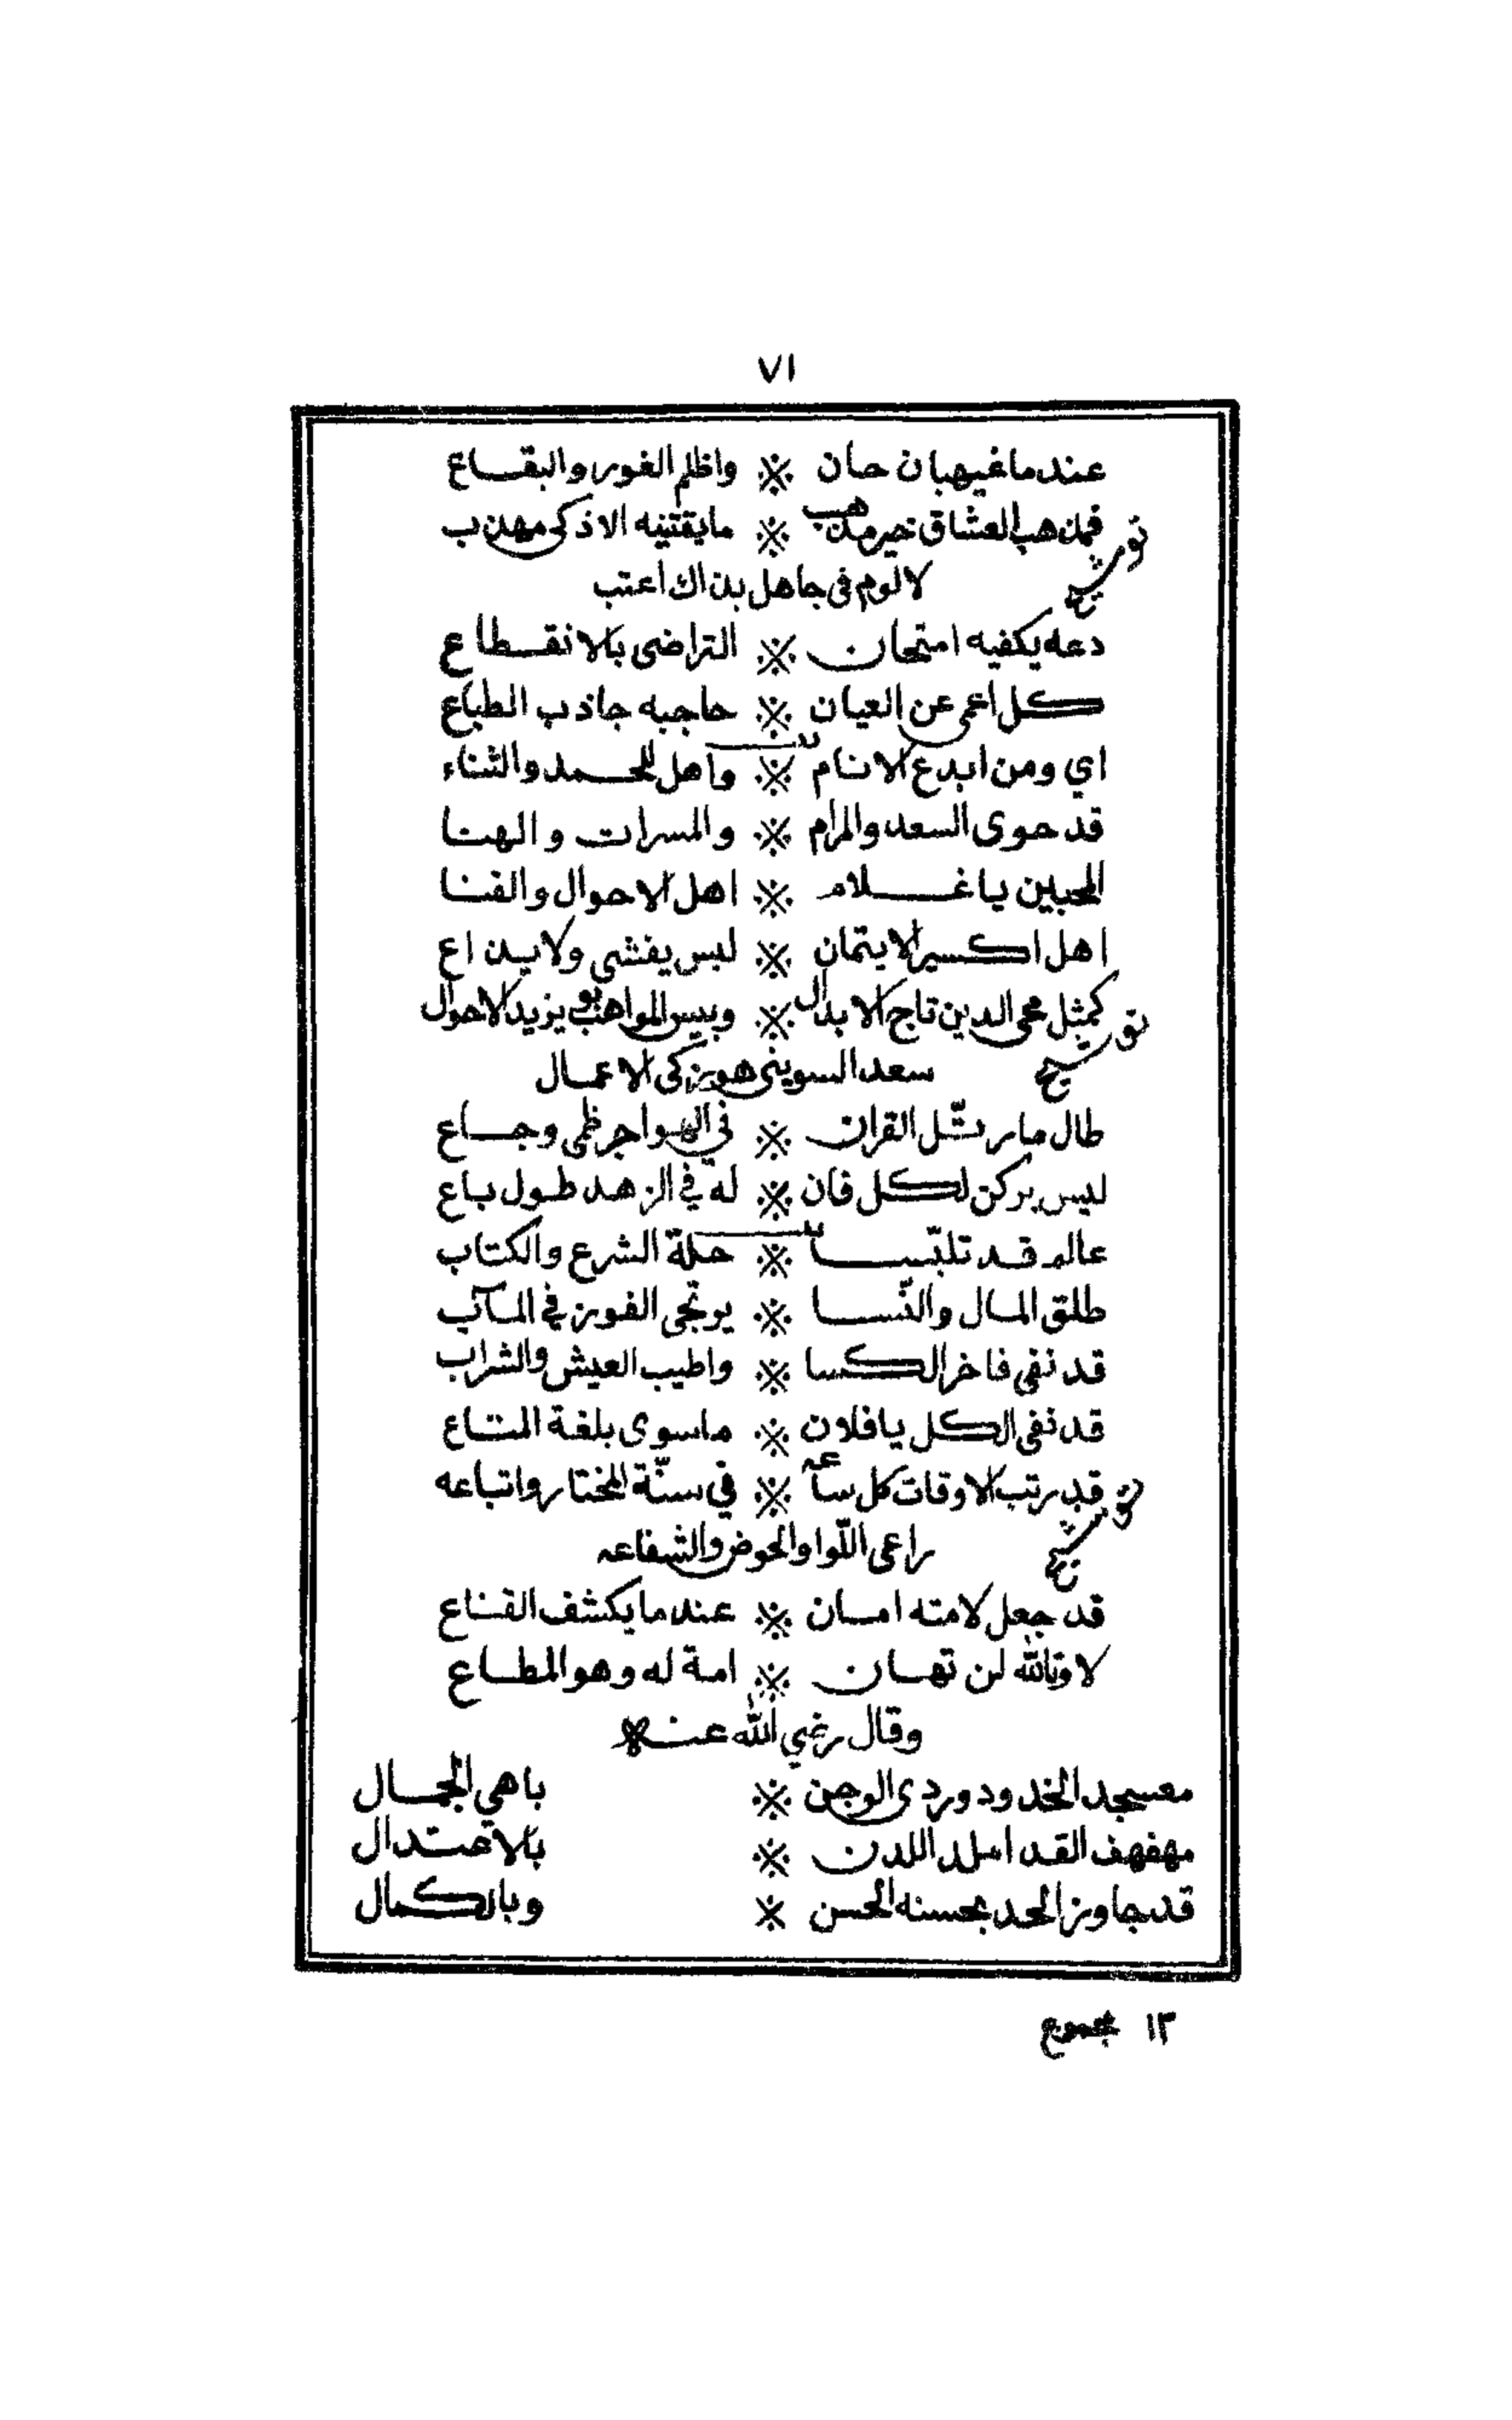 ٧١
عندما غيهبان حان ※ واظلم الغور والبقاع
توشيح فمذهب العشاق خير مذهب ※ مايقتنيه الا ذكى مهذب
لا لوم فى جاهل بذاك اعتب
دعه يكفيه امتحان ※ التراضى بالانقطاع
كل اعمى عن العيان ※ حاجبه جاذب الطباع
اي ومن ابدع الانام ※ واهل للحمد والثناء
قد حوى السعد والمرام ※ والمسرات والهنا
المحبين ياغلام ※ اهل الاحوال والفنا
اهل اكسير الايتمان ※ ليس يفشى ولايذاع
توشيح كمثل محى الدين تاج الابدال ※ وبيس المواهب بويزيد الاحوال
سعد السوينى هو بزكى الاعمال
طال مارتّل القران ※ في الهواجر ظمى وجاع
ليس يركن لكل فان ※ له في الزهد طول باع
عالم قد تلبّسا ※ حلة الشرع والكتاب
طلق المال والنّسا ※ يرتجى الفوز في المآب
قد نفى فاخر الكسا ※ واطيب العيش والشراب
قد نفى الكل يافلان ※ ماسوى بلغة المتاع
توشيح قد رتب الاوقات كل ساعه ※ في سنّة المختار واتباعه
راعى اللّوا والحوض والشفاعه
قد جعل لامته امان ※ عندما يكشف القناع
لا وتالله لن تهان ※ امة له وهو المطاع
وقال رضي الله عنه
معسجد الخدود وردى الوجن ※ باهي الجمال
مهفهف القد املد اللدن ※ بالاعتدال
قد جاوز الحد بحسنه الحسن ※ وبالكمال
١٣ مجموع